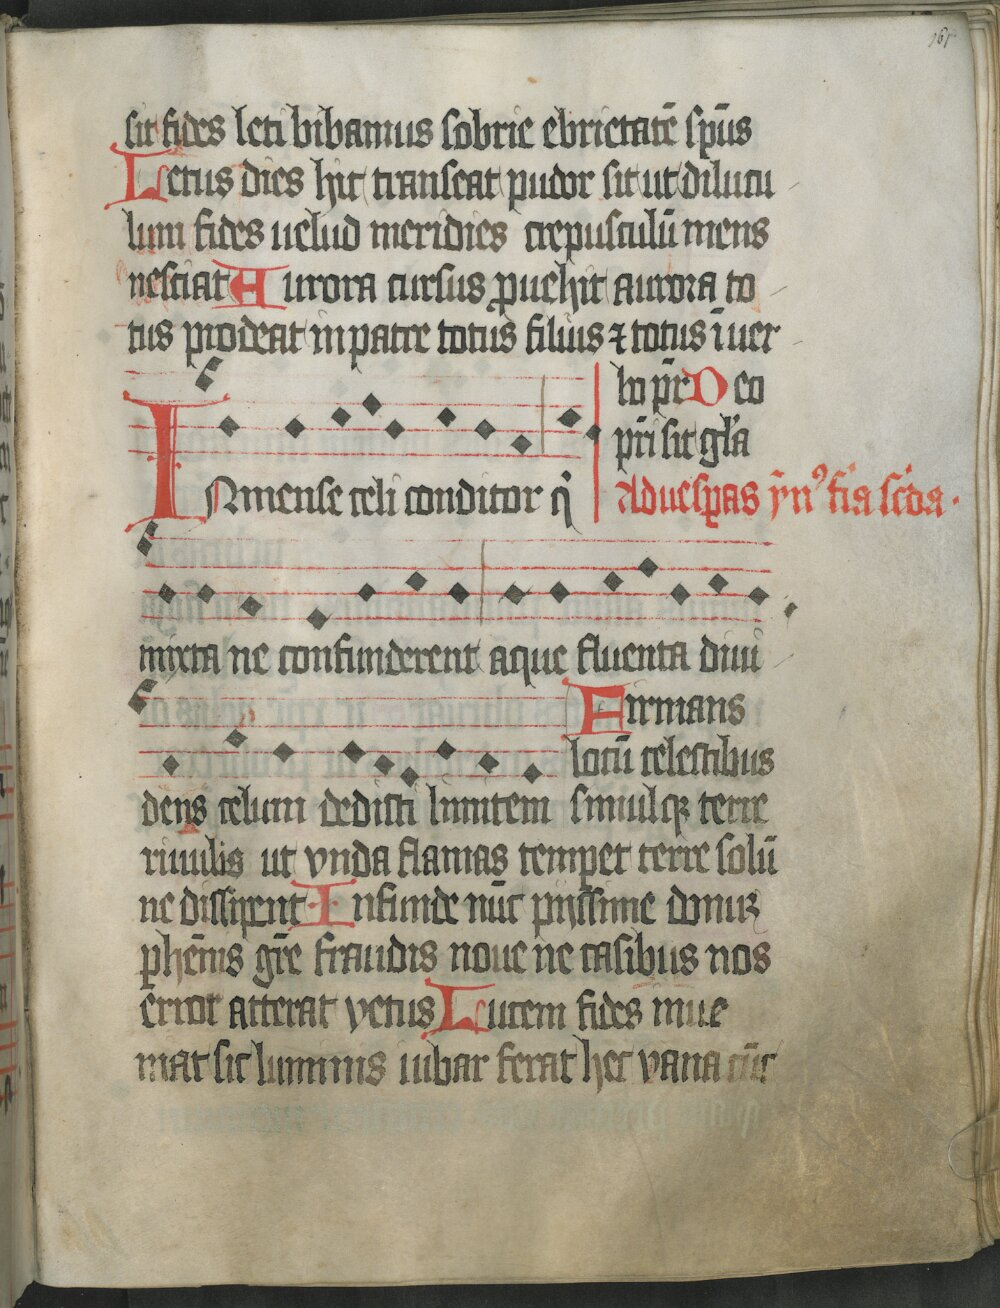 161
sit fides leti bibamus sobrie ebrietatē sp̄us
Letus dies hic transeat pudor sit ut dilucu
lum fides uelud meridies crepusculū mens
nesciat Aurora cursus ꝓuehit aurora to
tus prodeat in patre totus filius ⁊ totus ī uer
bo pr̄ Deo
pr̄i sit gl̄a
Ad uesꝑas ẏn᷒ fīa sc̄da.
INmense celi conditor q̄
mixta ne confunderent aque fluenta diui
Firmans
locū celestibus
dens celum dedisti limitem simulqꝫ terre
riuulis ut vnda flamas temperet terre solū
ne dissipent Infunde nūc pijssime donuꝫ
phēnis gr̄e fraudis noue ne casibus nos
error atterat vetus Lucem fides inue
niat sic luminis iubar ferat hec vana cūc